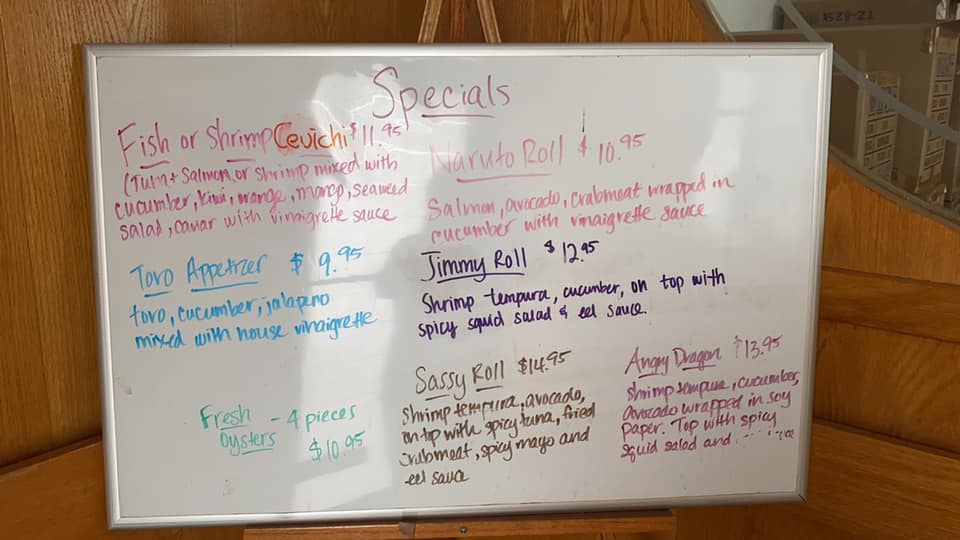 Specials
Fish or Shrimp Cevichi $11.95
(Tuna + Salmon, or shrimp mixed with
cucumber, kiwi, orange, mango, seaweed
salad, caviar with vinaigrette sauce
Naruto Roll $10.95
Salmon, avocado, crabmeat wrapped in
cucumber with vinaigrette sauce
Toro Appetizer $9.95
toro, cucumber, jalapeno
mixed with house vinaigrette
Jimmy Roll $12.95
Shrimp tempura, cucumber, on top with
spicy squid salad & eel sauce.
Fresh Oysters - 4 pieces
$10.95
Sassy Roll $14.95
Shrimp tempura, avocado,
on top with spicy tuna, fried
crabmeat, spicy mayo and
eel sauce
Angry Dragon $13.95
shrimp tempura, cucumber,
avocado wrapped in soy
paper. Top with spicy
squid salad and